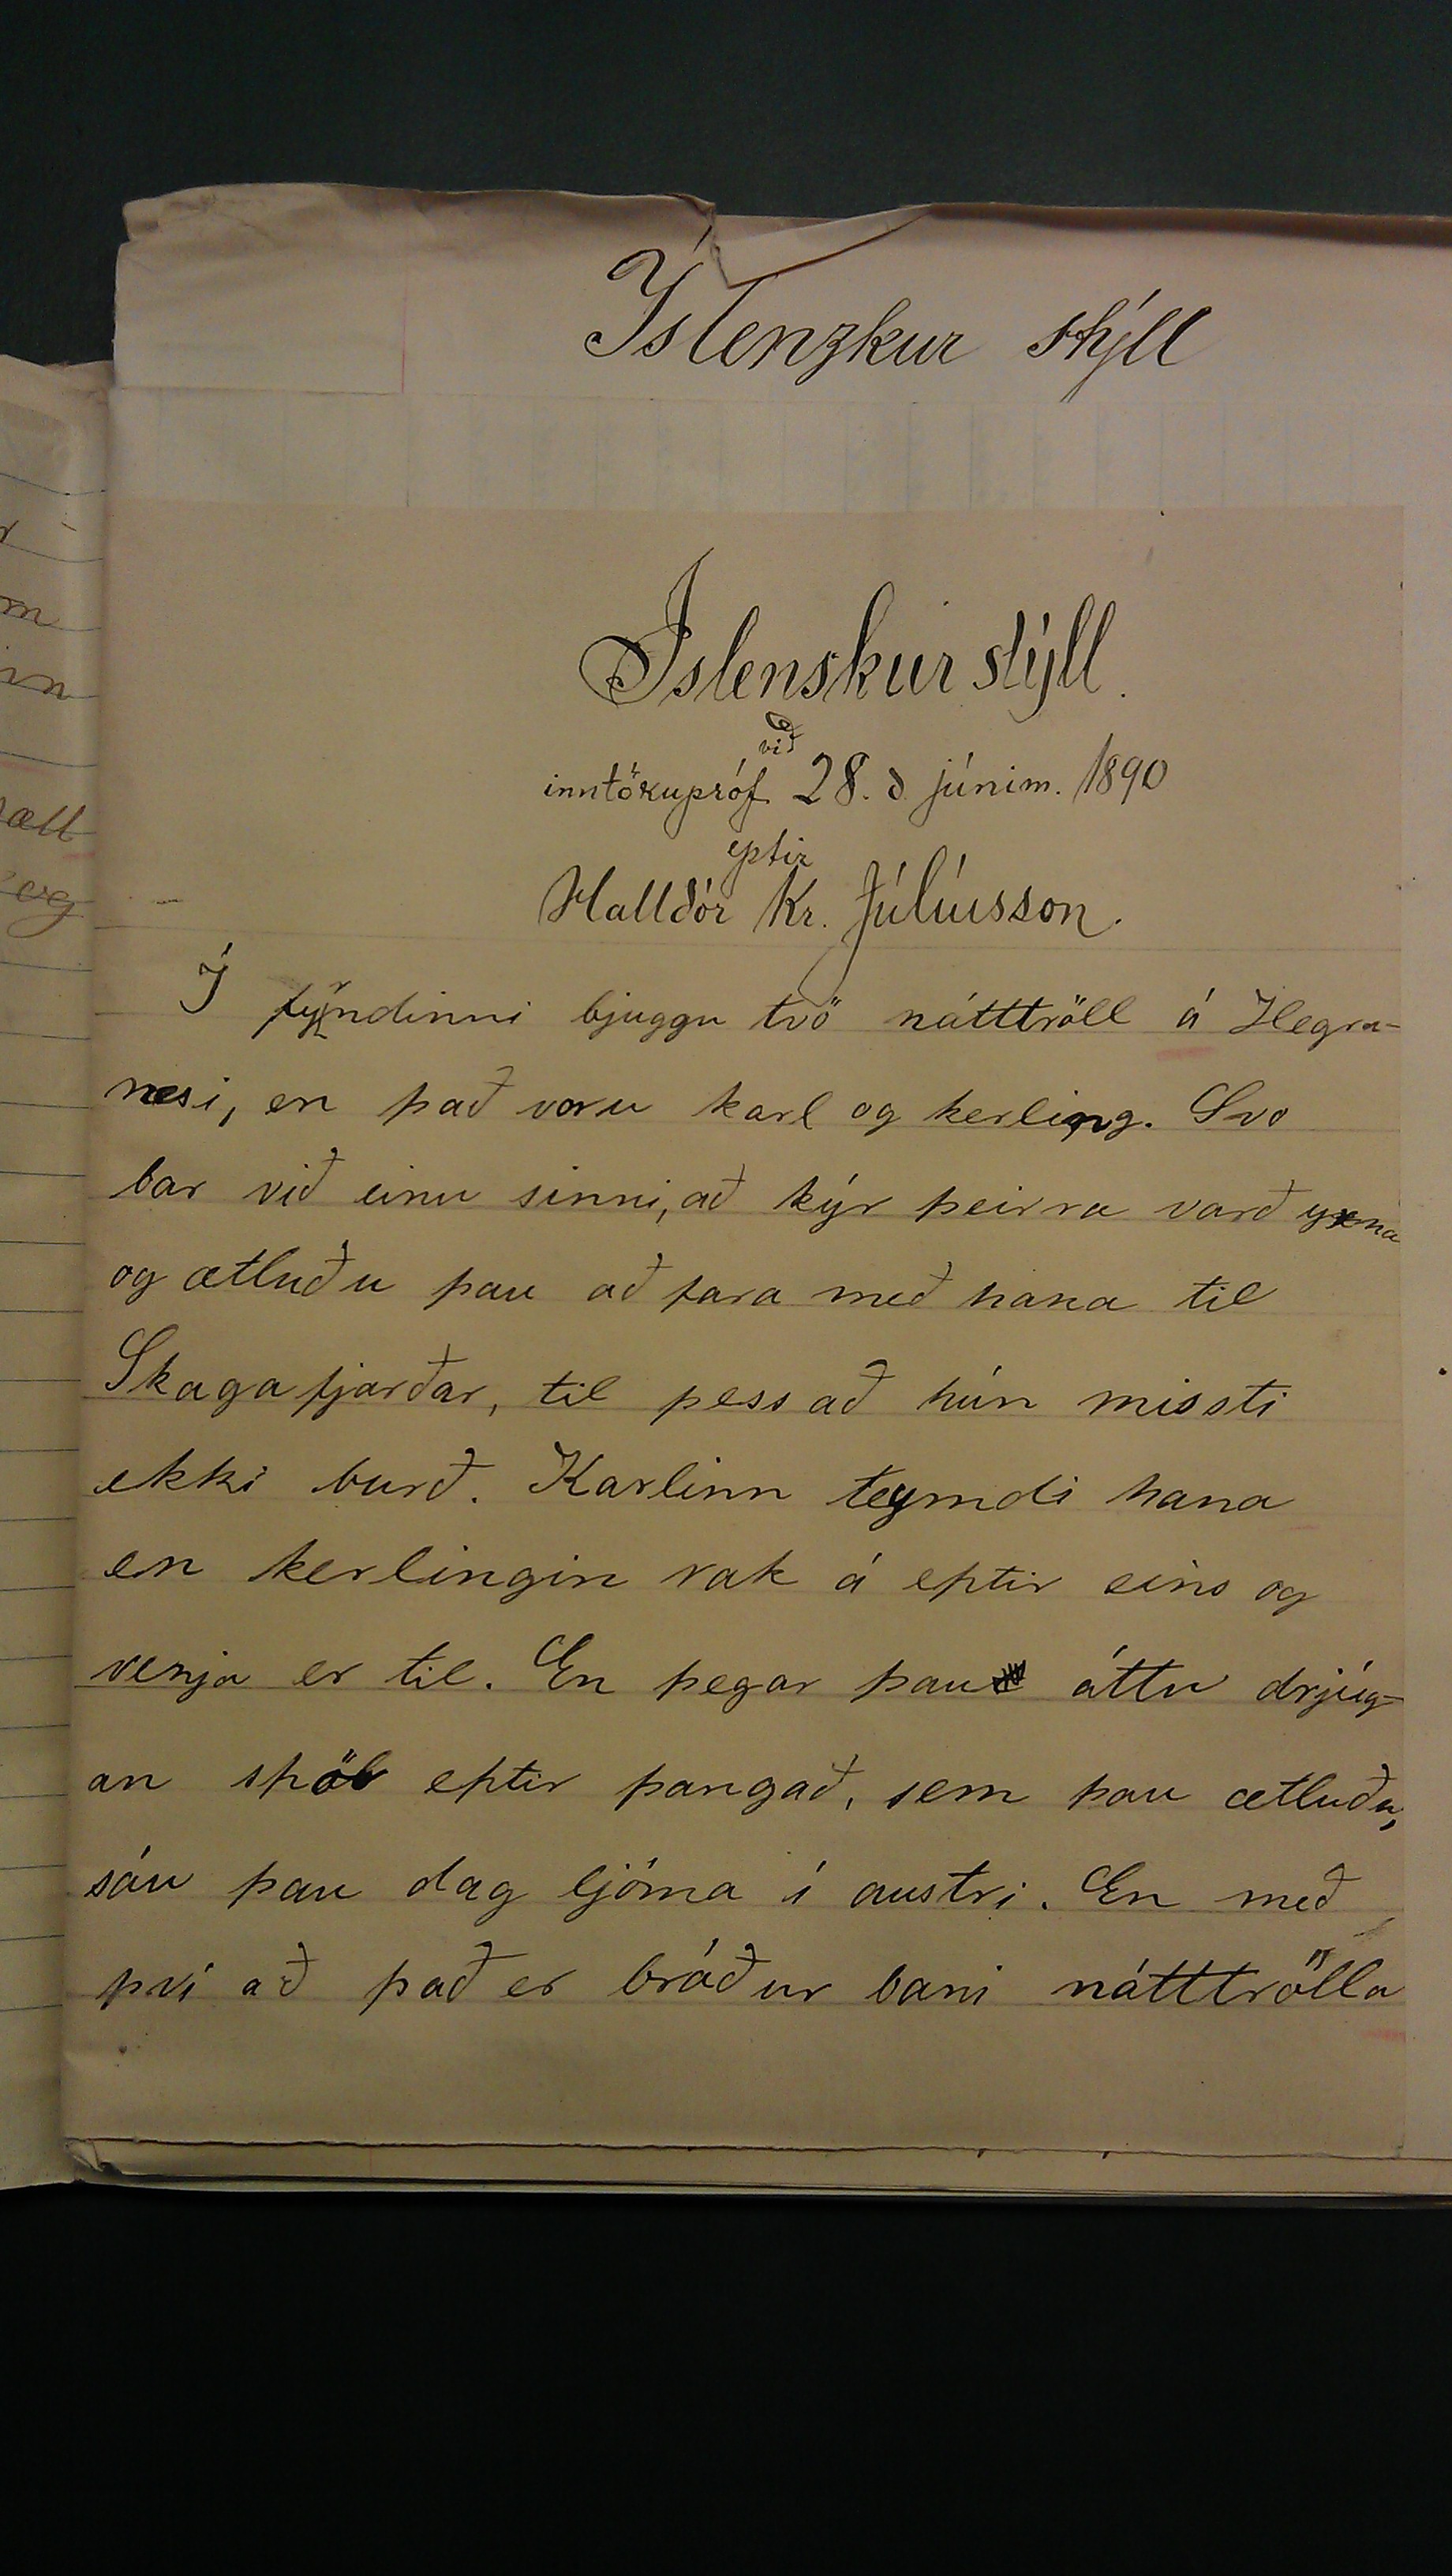 Íslenzkur stýll
Íslenskur stýll.
við
inntökupróf 28. d. júním. 1890
eptir
Halldór Kr. Júlíusson.
Í fyrndinni bjuggu tvö nátttröll á Hegra-
nesi, en það voru karl og kerling. Svo
bar við einu sinni, að kýr þeirra varð yxna
og ætluðu þau að fara með hana til
Skagafjarðar, til þess að hún missti
ekki burð. Karlinn teymdi hana
en kerlingin rak á eptir eins og
venja er til. En þegar þau áttu drjúg-
an spöl eptir þangað, sem þau ætluðu,
sáu þau dag ljóma í austri. En með
því að það er bráður bani nátttrölla
m
inn
og